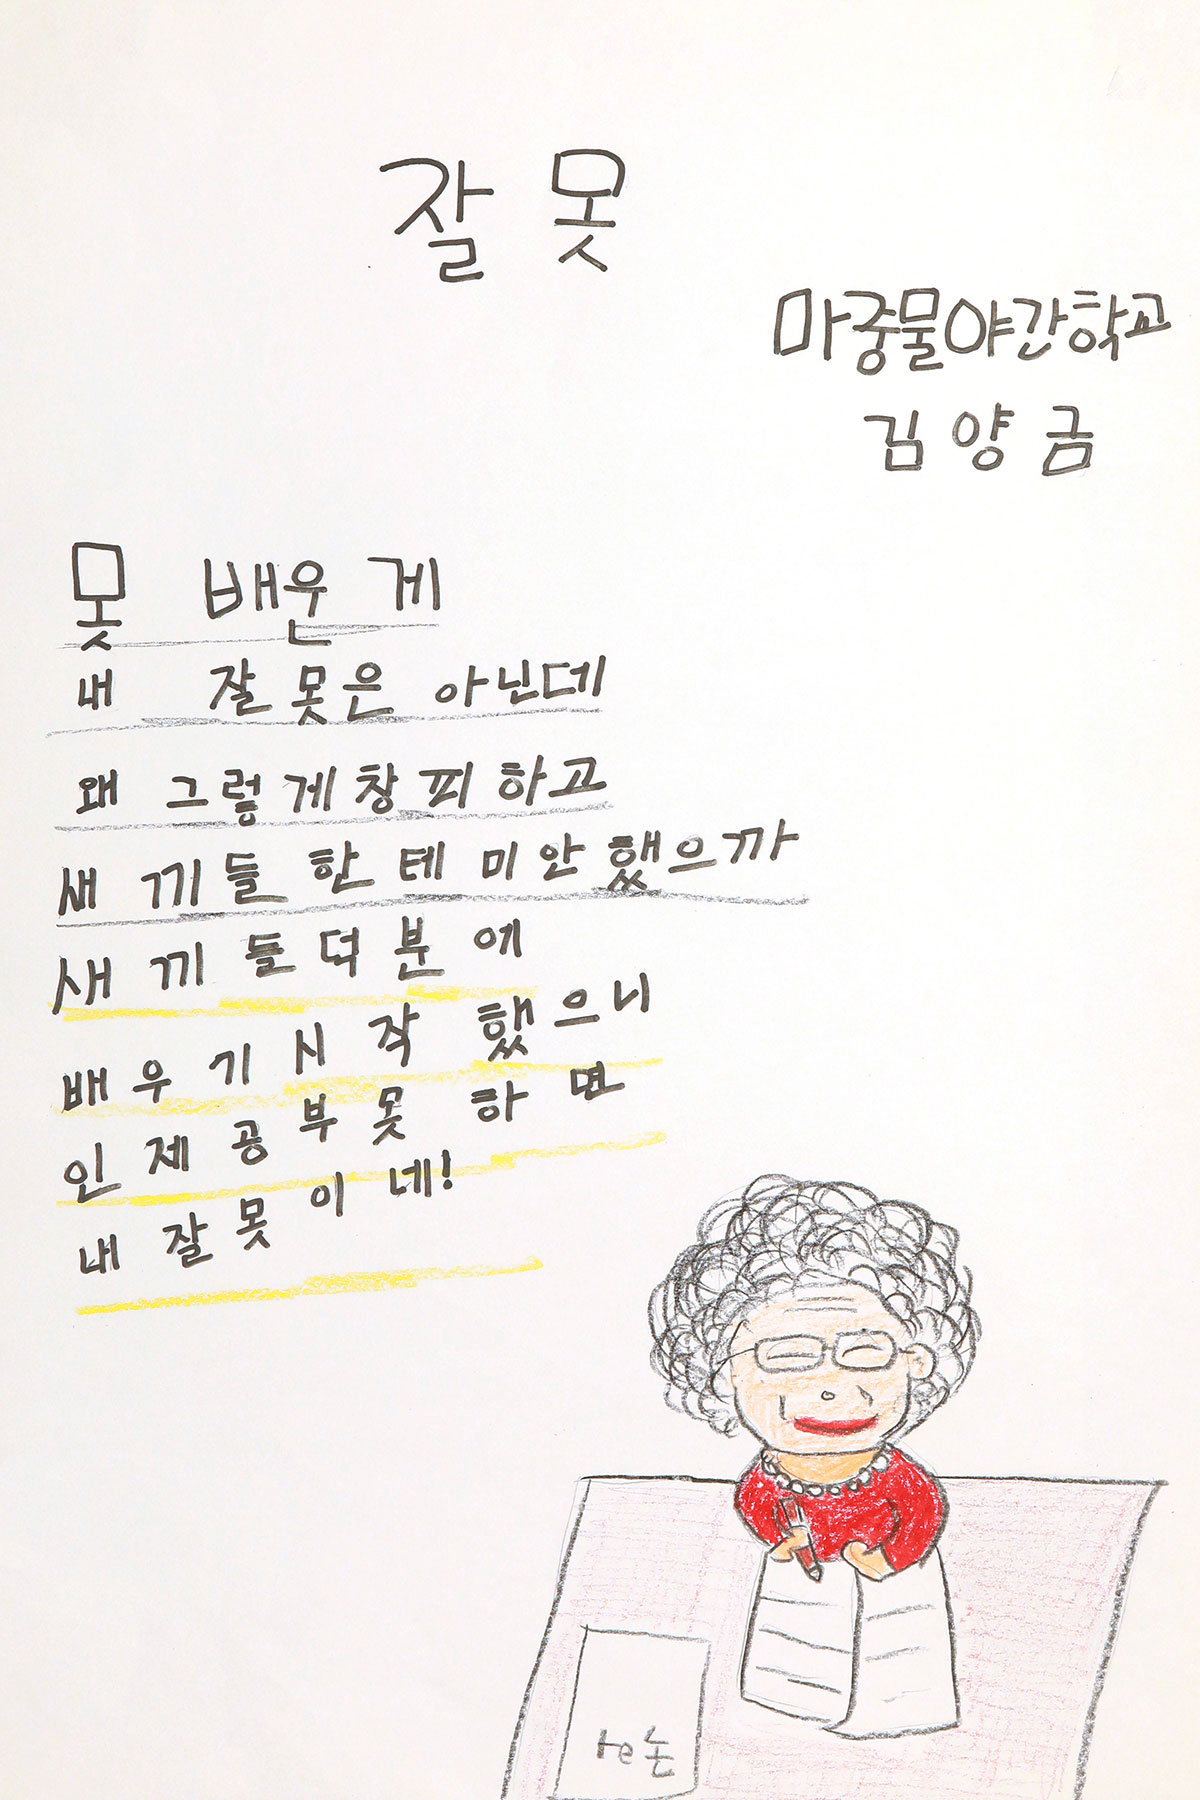 잘못
마중물야간학교
김양금
못 배운 게
내 잘못은 아닌데
왜 그렇게 창피하고
새끼들한테 미안했으까
새끼들 덕분에
배우기 시작했으니
인제 공부 못하면
내 잘못이네!